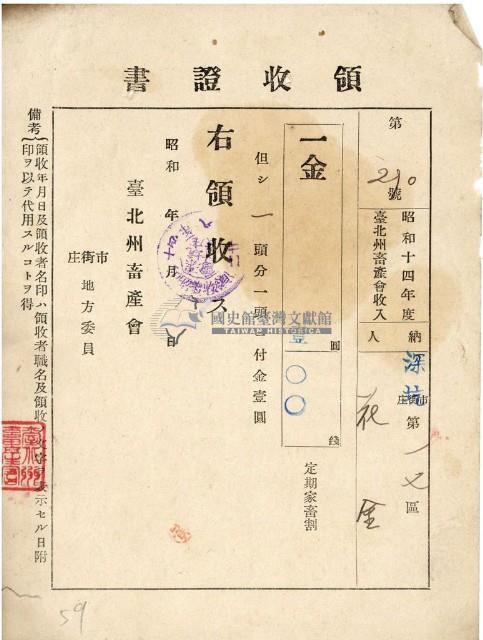 領收證書
第 210 號
昭和十四年度
臺北州畜產會收入
納人
深坑
市街庄 第一七區
定期家畜割
一金
壹圓〇〇錢
但シ一頭分一頭ニ付金壹圓
右領收ス
昭和 年 月 日
臺北州畜產會
市街庄地方委員
備考
領收年月日及領收者名印ハ領收者職名及領收
示セル日附
印ヲ以テ代用スルコトヲ得
臺北州
畜產會
國史館臺灣文獻館
TAIWAN HISTORICA
59